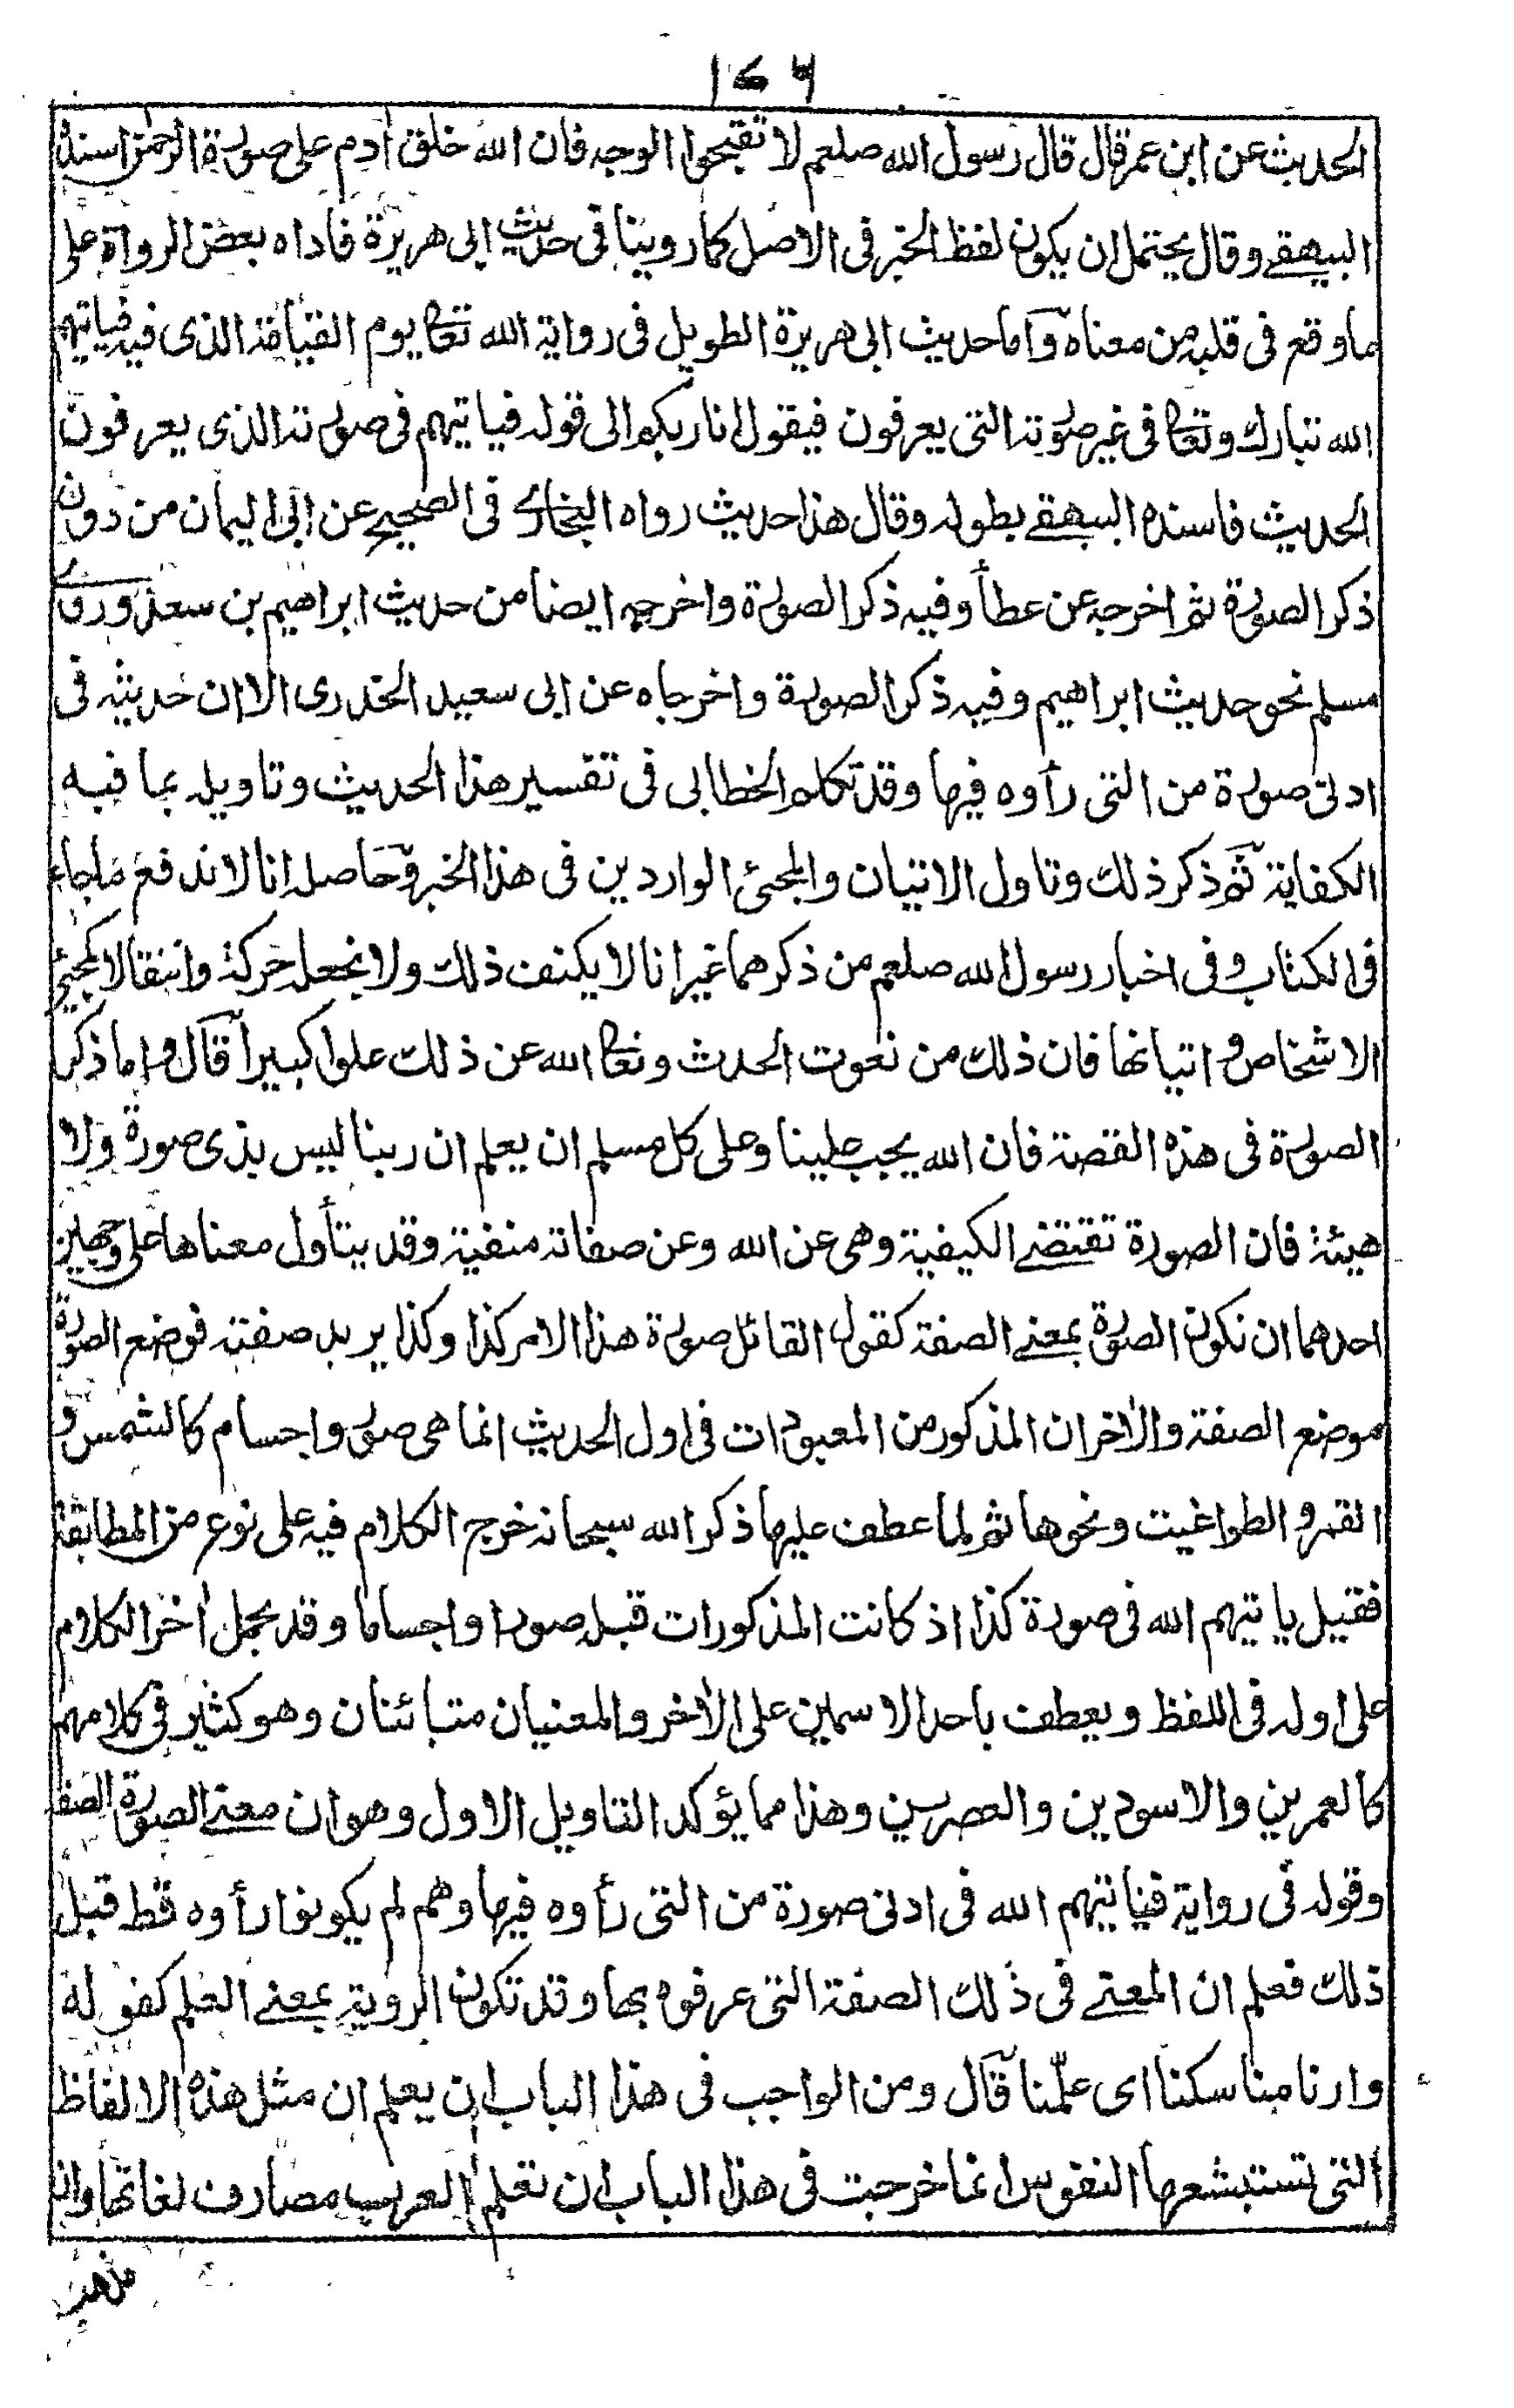 ۱۷۶
الحديث عن ابن عمر قال قال رسول الله صلعم لا تقبحوا الوجه فان الله خلق آدم على صورة الرحمن اسنده
البيهقے وقال يحتمل ان يكون لفظ الخبر فى الاصل كما روينا فى حديث ابى هريرة فاداه بعض الرواة على
ما وقع فى قلبه من معناه وآما حديث ابى هريرة الطويل فى رواية الله تعالى يوم القيامة الذى فيه فياتيهم
الله تبارك وتعالى فى غير صورته التى يعرفون فيقول انا ربكم الى قوله فياتيهم فى صورته الذى يعرفون
الحديث فاسنده البيهقے بطوله وقال هذا حديث رواه البخارى فى الصحيح عن ابى اليمان من دون
ذكر الصورة ثم اخرجه عن عطأ وفيه ذكر الصورة واخرجه ايضا من حديث ابراهيم بن سعد وروى
مسلم نحو حديث ابراهيم وفيه ذكر الصورة واخرجاه عن ابى سعيد الخدرى الا ان حديثه فى
ادنى صورة من التى رأوه فيها وقد تكلم الخطابى فى تفسير هذا الحديث وتاويله بما فيه
الكفاية ثم ذكر ذلك وتاول الاتيان والمجئ الواردين فى هذا الخبر وحاصله انا لا ندفع ما جاء
فى الكتاب وفى اخبار رسول الله صلعم من ذكرهما غير انا لا يكنف ذلك ولا نجعله حركة وانتقالا كمجئ
الاشخاص و اتيانها فان ذلك من نعوت الحدث وتعالى الله عن ذلك علوا كبيرا قآل واما ذكر
الصورة فى هذه القصة فان الله يجب علينا وعلى كل مسلم ان يعلم ان ربنا ليس بذى صورة ولا
هيئة فان الصورة تقتضے الكيفية وهى عن الله وعن صفاته منفية وقد يتأول معناها على وجهين
احدهما ان تكون الصورة بمعنے الصفة كقول القائل صورة هذا الامر كذا وكذا يريد صفته فوضع الصورة
موضع الصفة والآخر ان المذكور من المعبودات فى اول الحديث انما هى صور واجسام كالشمس و
القمر و الطواغيت ونحوها ثم لما عطف عليها ذكر الله سبحانه خرج الكلام فيه على نوع من المطابقة
فقيل ياتيهم الله فى صورة كذا اذ كانت المذكورات قبله صورا واجساما وقد يحمل آخر الكلام
على اوله فى اللفظ ويعطف باحد الاسمين على الآخر والمعنيان متبائنان وهو كثير فى كلامهم
كالعمرين والاسودين والعصرين وهذا مما يؤكد التاويل الاول وهو ان معنے الصورة الصفة
وقوله فى رواية فياتيهم الله فى ادنى صورة من التى رأوه فيها وهم لم يكونوا رأوه قط قبل
ذلك فعلم ان المعنے فى ذلك الصفة التى عرفوه بها وقد تكون الروية بمعنے العلم كقوله
وارنا مناسكنا اى علّمنا قآل ومن الواجب فى هذا الباب ان يعلم ان مثل هذه الالفاظ
التى تستبشعها النفوس انما خرجت فى هذا الباب ان تعلم العرب مصارف لغاتها وان